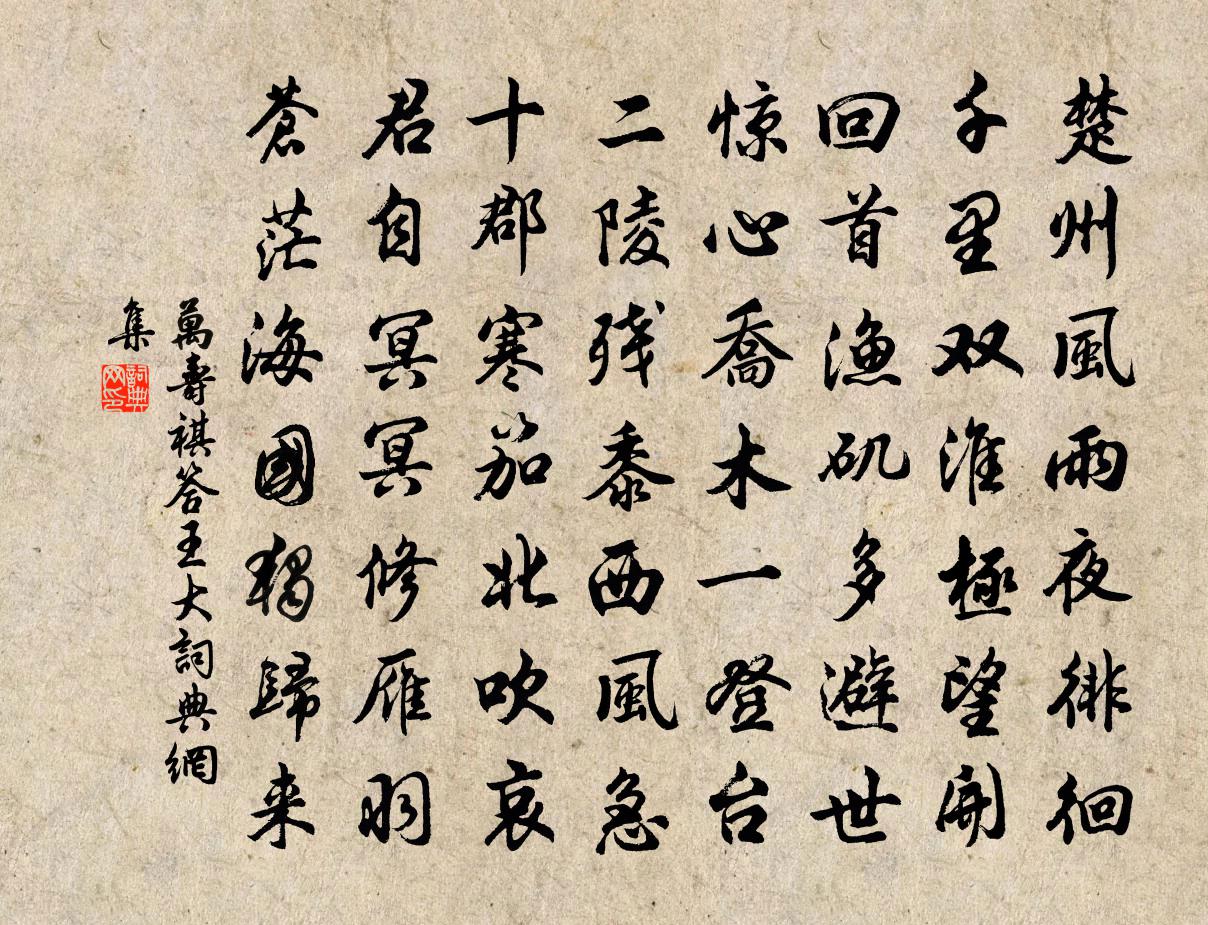 楚州風雨夜徘徊
千里双淮極望開
回首渔矶多避世
惊心喬木一登台
二陵残黍西風急
十郡寒笳北吹哀
君自冥冥修雁羽
蒼茫海國獨歸来
萬壽祺答王大詞典網
集
詞典
网印